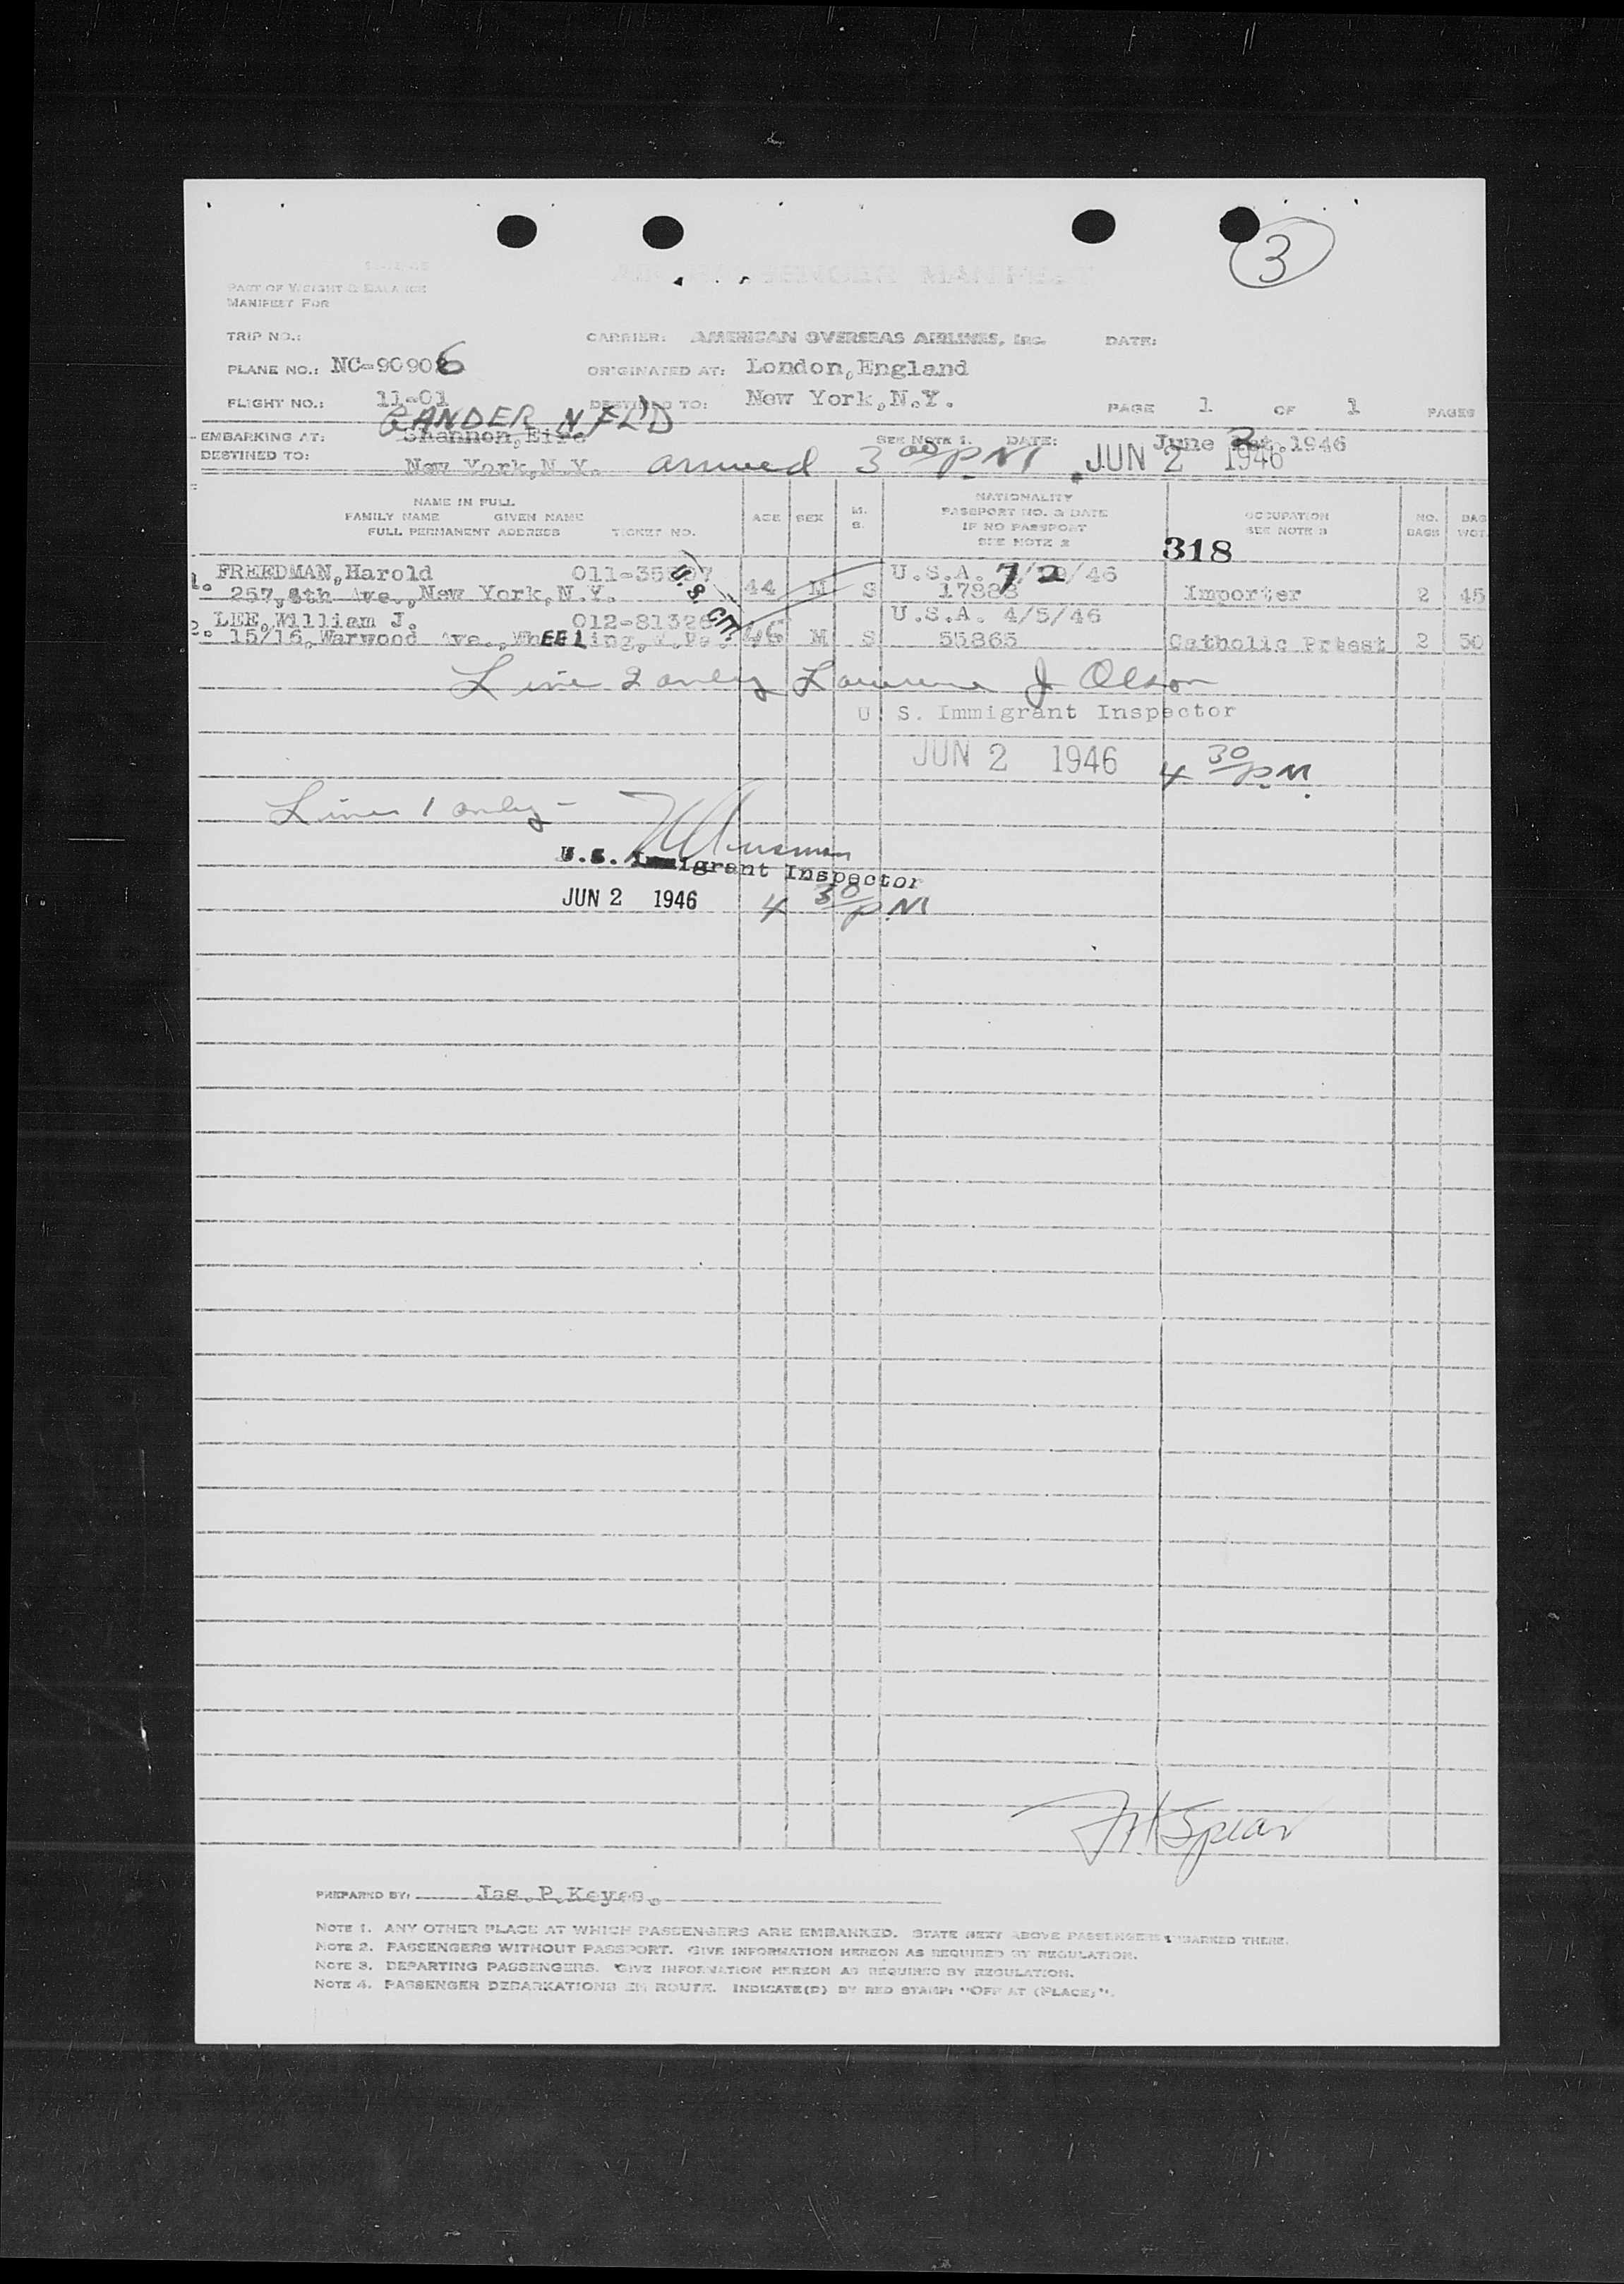 3
AIR PASSENGER MANIFEST
PART OF WEIGHT & BALANCE
MANIFEST FOR
TRIP NO.: CARRIER: AMERICAN OVERSEAS AIRLINES, INC. DATE:
PLANE NO.: NC-90906 ORIGINATED AT: London,England
FLIGHT NO.: 11-01 DESTINED TO: New York,N.Y. PAGE 1 OF 1 PAGES
GANDER NFL'D
EMBARKING AT: Shannon,Eire SEE NOTE 1. DATE: June 1946
DESTINED TO: New York,N.Y. arrived 3 00 PM JUN 2 1946
NAME IN FULL
FAMILY NAME GIVEN NAME
FULL PERMANENT ADDRESS TICKET NO.
AGE SEX M. S.
NATIONALITY
PASSPORT NO. & DATE
IF NO PASSPORT
SEE NOTE 2
OCCUPATION
SEE NOTE 3
NO. BAGS BAG WGT.
318
1. FREEDMAN,Harold U.S.A.
257, Ave.,New York,N.Y. 44 M S Importer 2 45
U.S. CIT.
2. LEE,William J. U.S.A. 4/5/46
15/16,Warwood Ave.,WhEELing,W.Va. 46 M S 55865 Catholic Priest 2 50
Line 2 only Lawrence J Olson
U. S. Immigrant Inspector
JUN 2 1946 4 30 P.M.
Lines 1 only -
U.S. Immigrant Inspector
JUN 2 1946 4 30 PM
Spear
PREPARED BY: Jas.P.Keyes.
NOTE 1. ANY OTHER PLACE AT WHICH PASSENGERS ARE EMBARKED. STATE NEXT ABOVE PASSENGERS EMBARKED THERE.
NOTE 2. PASSENGERS WITHOUT PASSPORT. GIVE INFORMATION HEREON AS REQUIRED BY REGULATION.
NOTE 3. DEPARTING PASSENGERS. GIVE INFORMATION HEREON AS REQUIRED BY REGULATION.
NOTE 4. PASSENGER DEBARKATIONS EN ROUTE. INDICATE(D) BY RED STAMP: "OFF AT (PLACE)".